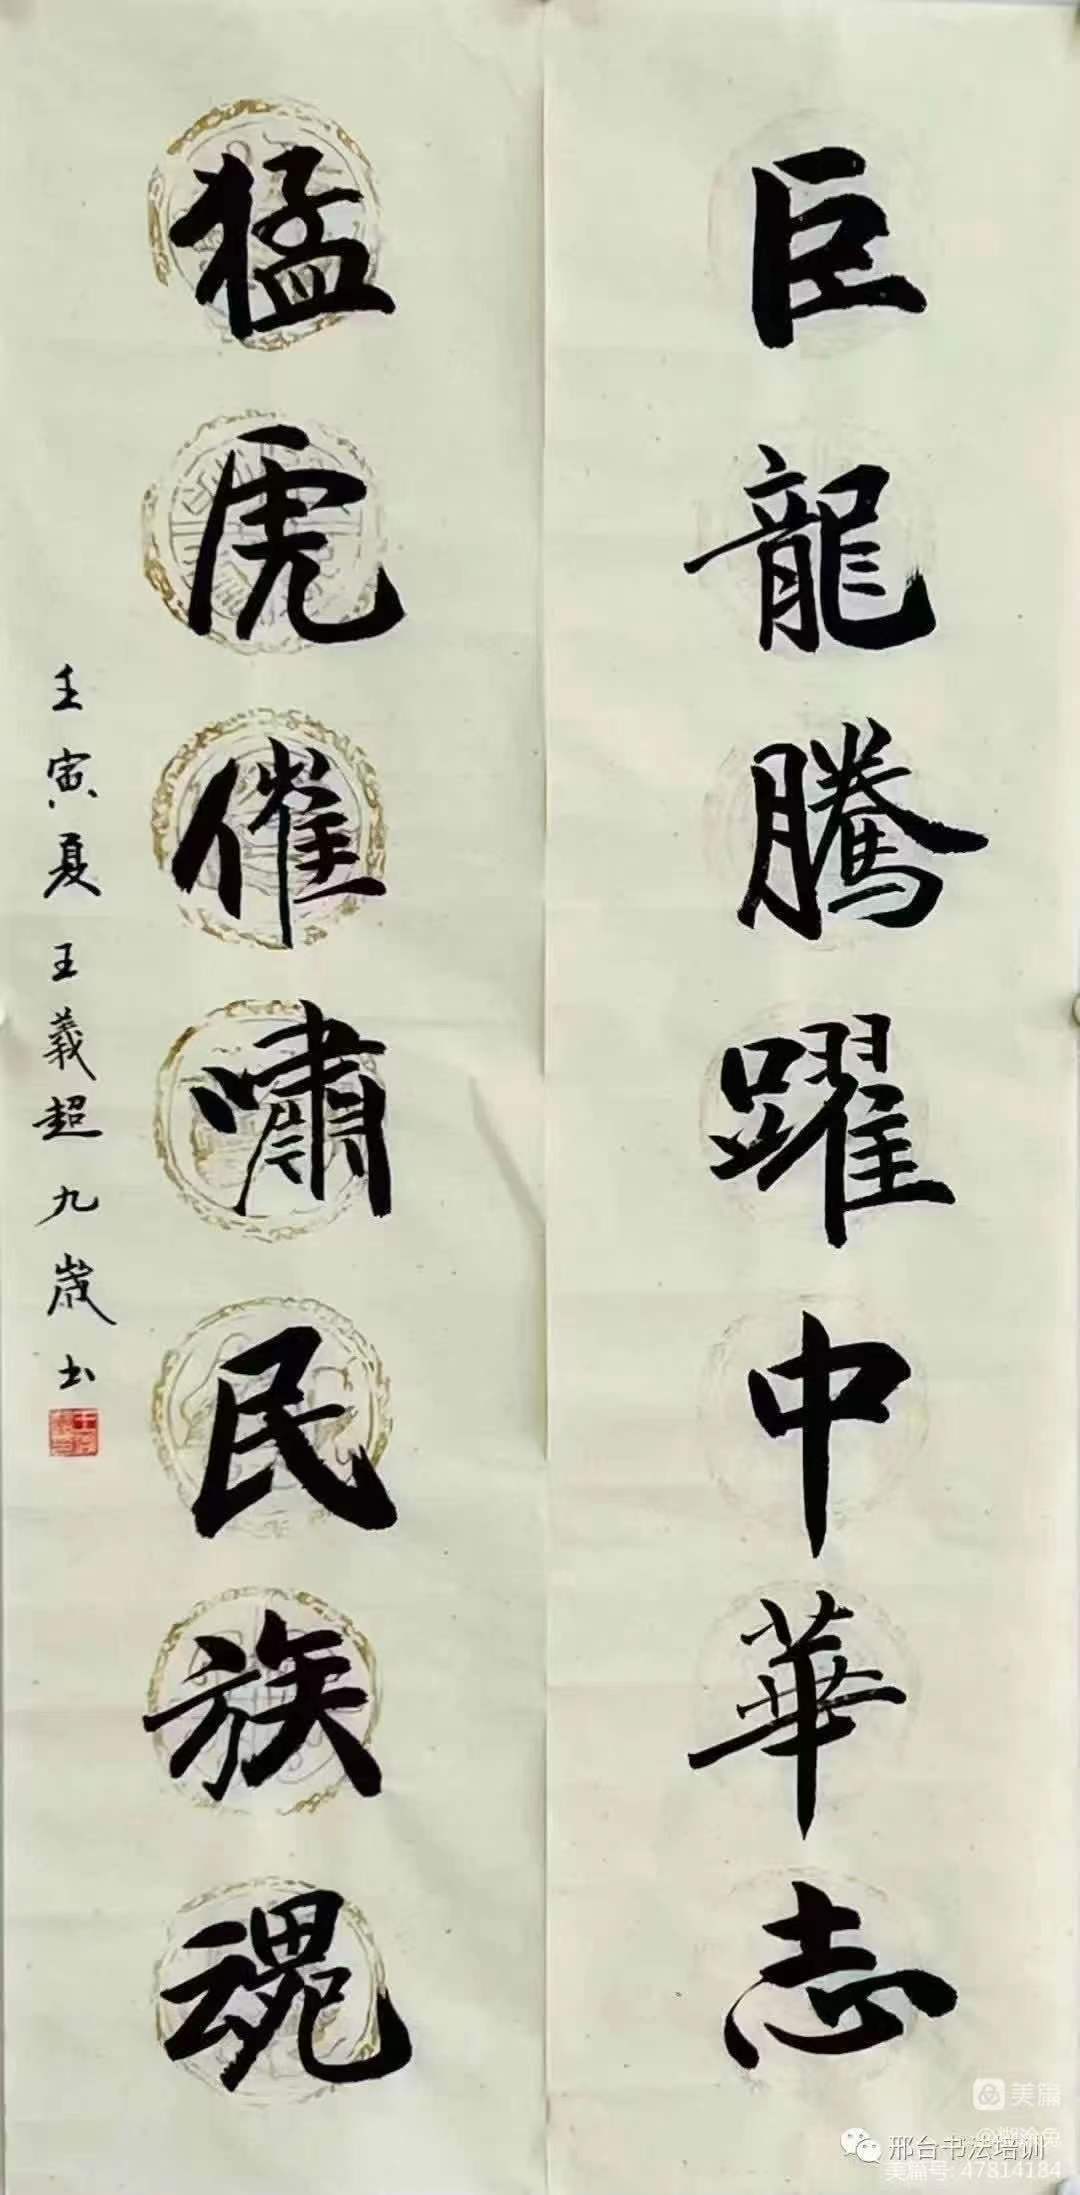 巨龍騰躍中華志
猛虎催嘯民族魂
壬寅夏 王義超 九歲书
美篇
邢台书法培训
美篇号: 47814184